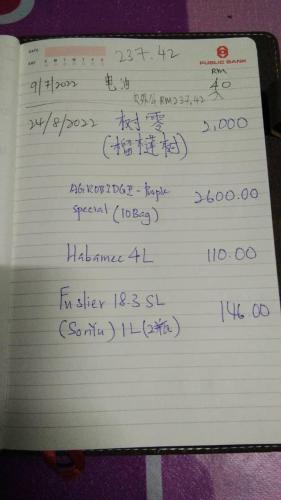 DATE
237.42
PUBLIC BANK
DAY
RM
9/7/2022 电油 40
RM237.42
24/8/2022 树零 2,000
(榴梿树)
AGROBIDGE-Purple 2600.00
special (10Bag)
Habamec 4L 110.00
Fuslier 18.3 SL 146.00
(Sonyu) 1L (2瓶)